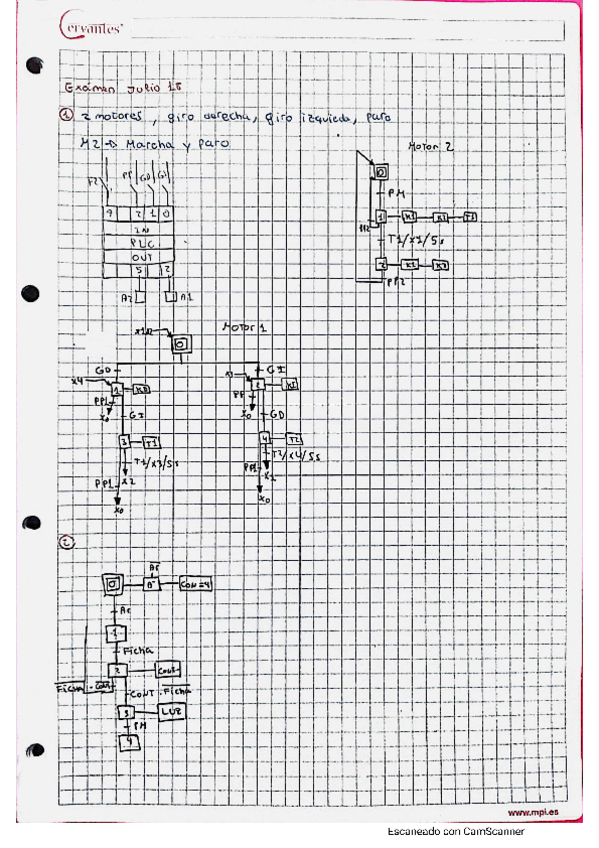 Cervantes
Exámen Julio 15
① 2 motores, giro derecha, giro izquierda, paro
M2 → Marcha y paro
Motor 2
F2 PP GD GI
9 2 1 0
IN
PLC
OUT
5 2
A2 A1
0
PM
1
T1
T1/x1/5s
2
PP2
Motor 1
0
GD GI
x4
1 KD
2 KI
PP1
PP
X0
GI
X0
GD
3 T1
4 T2
T1/x3/5s
T2/x4/5s
PP1 X2
PP1
X0
X0
②
0
CON=4
Ar
1
Ficha
2 CONT
Ficha . CONT
CONT . Ficha
3 LUZ
PM
4
www.mpi.es
Escaneado con CamScanner